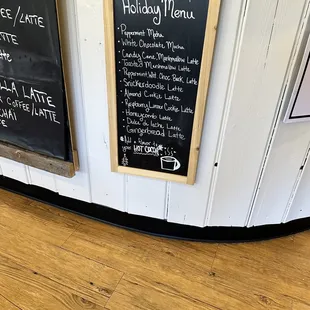 FFEE/LATTE
LATTE
LATTE
LATTE
COFFEE/LATTE
CHAI
Holiday Menu
Peppermint Mocha
White Chocolate Mocha
Candy Cane Marshmallow Latte
Toasted Marshmallow Latte
Peppermint Whit. Choc Bark Latte
Snickerdoodle Latte
Almond Cookie Latte
Raspberry Linzer Cookie Latte
Honeycomb Latte
Dulce de leche Latte
Gingerbread Latte
Add a flavor to
your HOT COCOA